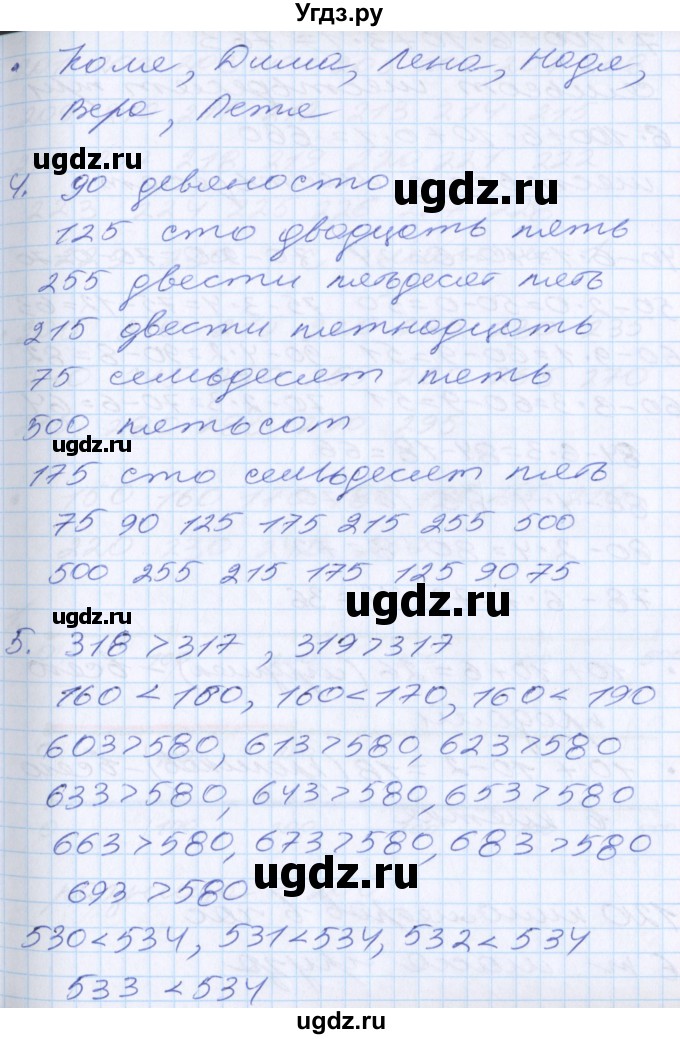 Угдз.ру
. Коля, Дима, Лена, Надя,
Вера, Петя
ugdz.ru
ugdz.ru
4. 90 девяносто
125 сто двадцать пять
255 двести пятьдесят пять
215 двести пятнадцать
75 семьдесят пять
500 пятьсот
ugdz.ru
175 сто семьдесят пять
75 90 125 175 215 255 500
500 255 215 175 125 90 75
ugdz.ru
ugdz.ru
5. 318 > 317 , 319 > 317
160 < 180, 160 < 170, 160 < 190
603 > 580, 613 > 580, 623 > 580
633 > 580, 643 > 580, 653 > 580
663 > 580, 673 > 580, 683 > 580
ugdz.ru
693 > 580
530 < 534, 531 < 534, 532 < 534
533 < 534
ugdz.ru